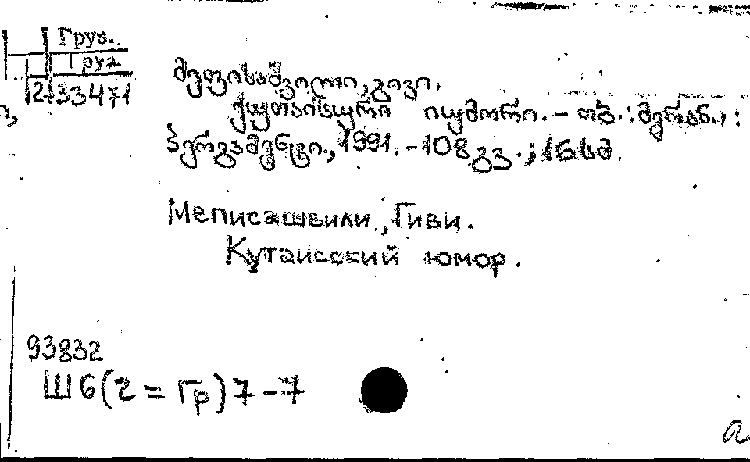 Груз.
груз.
2133471
მეფისაშვილი, გივი.
ქუთაისური იუმორი. – თბ.: მერან.,:
პერგამენტი., 1991. – 108 გვ.; 16 სმ.
Меписашвили, Гиви.
Кутаисский юмор.
93832
Ш6(2=Гр)7-7